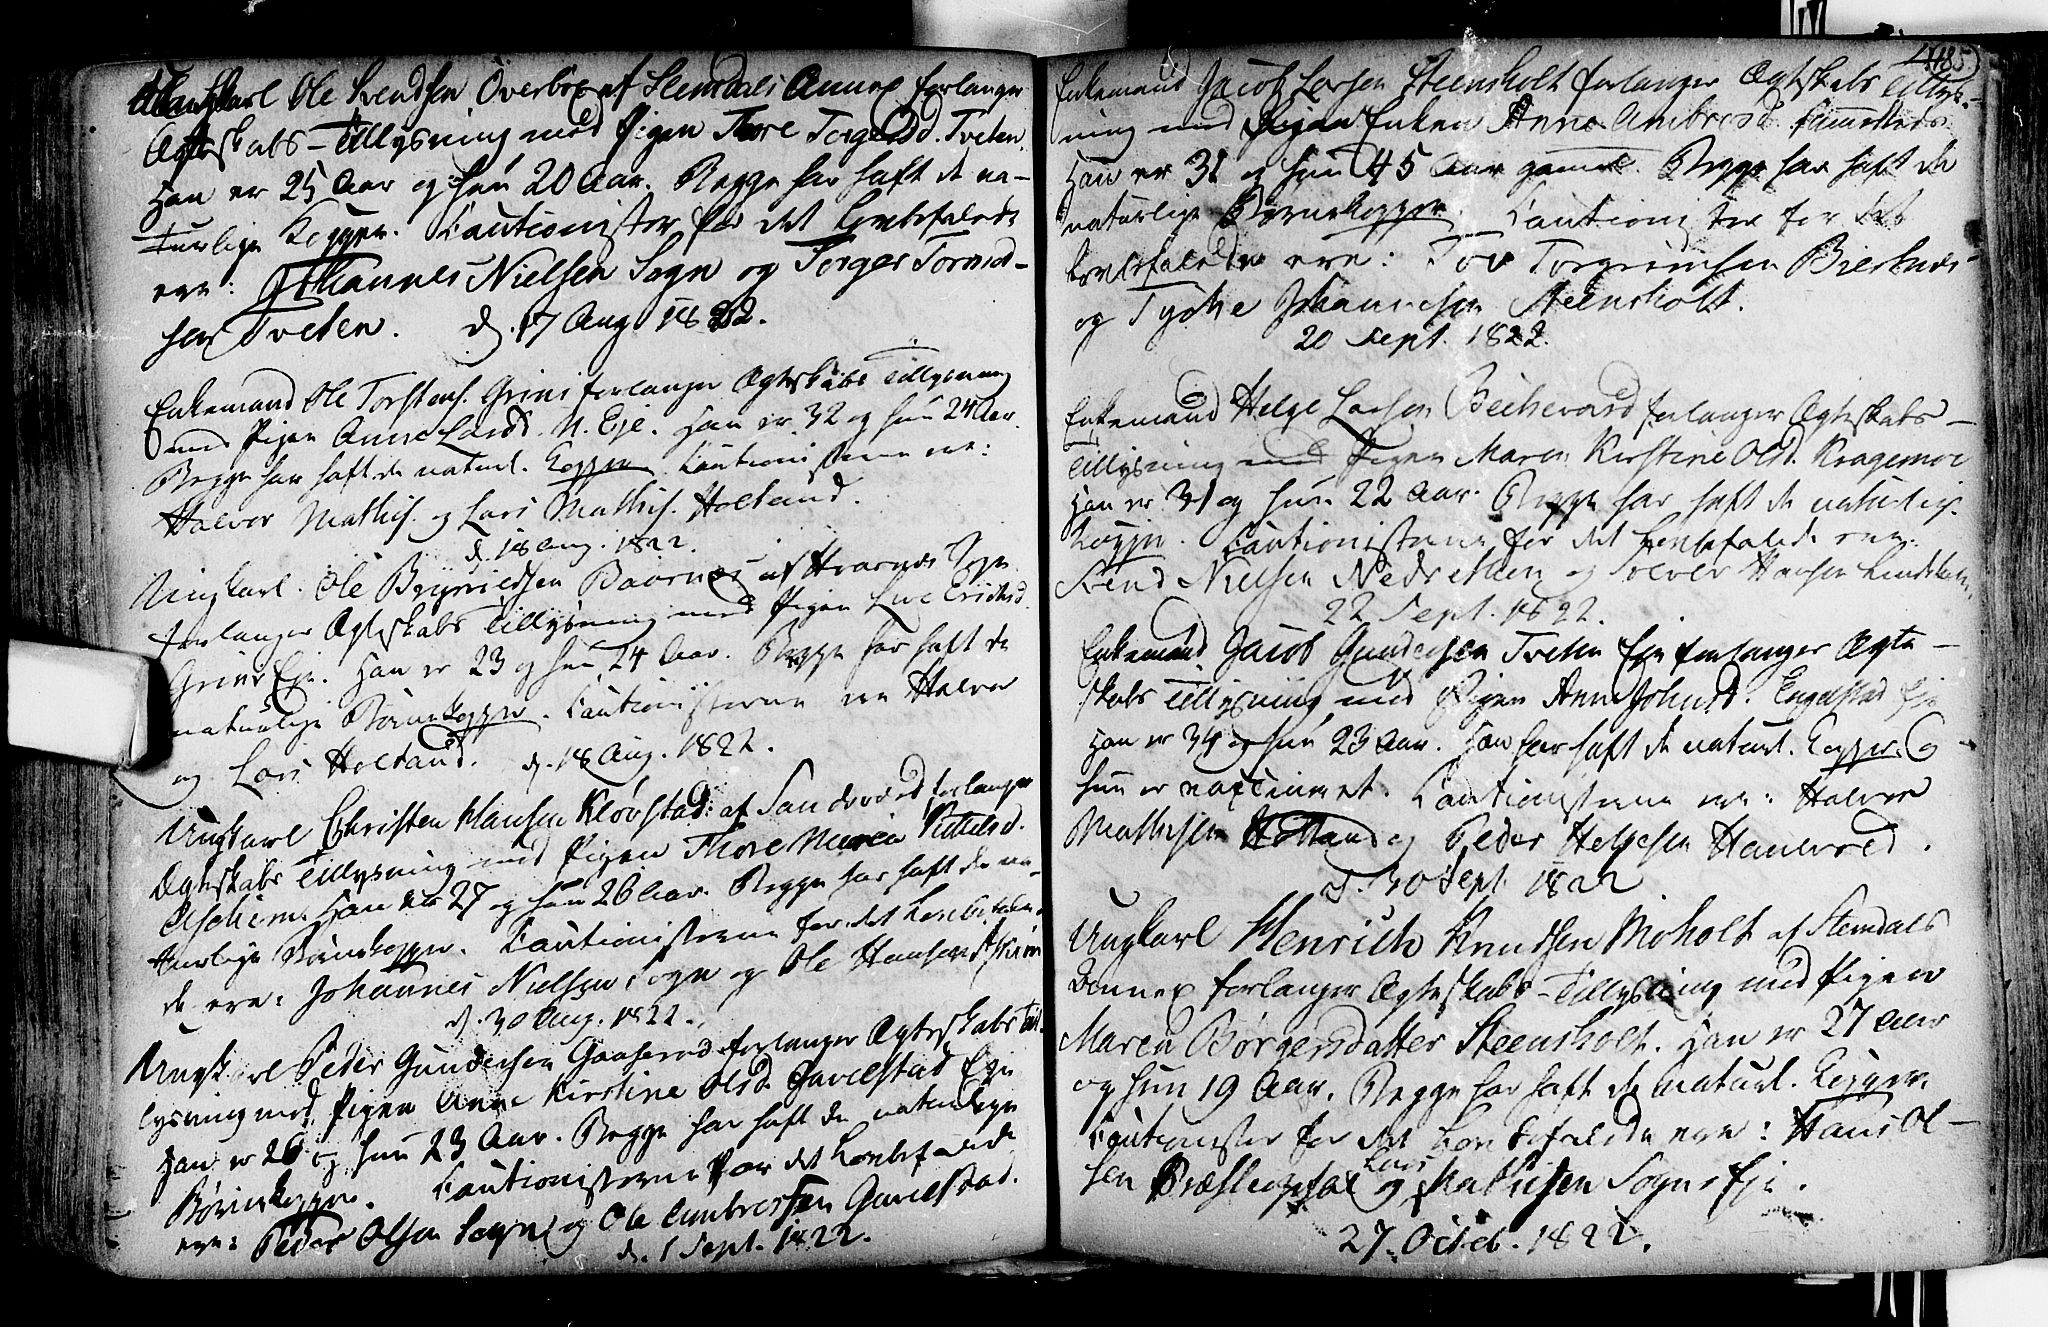 Ungkarl Ole Svendsen Overbøe af Slemdals Annex forlanger
Ægteskabs-Tillysning med Pigen Thore Torgersd. Tveten.
Han er 25 Aar og hun 20 Aar. Begge har haft de na-
turlige Kopper. Cautionister for det Lovbefalede
ere: Johannes Nielsen Sogn og Torger Tormod-
sen Tveten. d. 17 Aug 1822.
Enkemand Ole Torstens. Grini forlanger Ægteskabs Tillysning
med Pigen Anne Larsd. N. Eje. Han er 32 og hun 24 Aar.
Begge har haft de naturl. Kopper. Cautionisterne ere:
Halvor Mathis. og Lars Mathis. Holtand.
d. 18 Aug. 1822.
Ungkarl Ole Brynildsen Baarnes af Hvarnes Sogn
forlanger Ægteskabs Tillysning med Pigen Live Erichsd.
Grini Eje. Han er 23 og hun 24 Aar. Begge har haft de
naturlige Børnekopper. Cautionisterne ere Halvor
og Lars Holtand. d. 18 Aug. 1822.
Ungkarl Christen Hansen Kløvstad af Sandeverd forlanger
Ægteskabs Tillysning med Pigen Thore Maria Kittelsd.
Han er 27 og hun 26 Aar. Begge har haft de na-
turlige Børnekopper. Cautionisterne for det Lovbefale-
de ere: Johannes Nielsen Sogn og Ole Hansen
d. 30 Aug. 1822.
Ungkarl Peder Gundersen Gaaserod forlanger Ægteskabs Til-
lysning med Pigen Anne Kirstine Olsd. Gavelstad Eje
Han er 26 og hun 23 Aar. Begge har haft de naturlige
Børnekopper. Cautionisterne for det Lovbefalede
ere: Peder Olsen Sogn og Ole Ambrosen Gavelstad.
d. 1 Sept. 1822.
Enkemand Jacob Larsen Steensholt forlanger Ægteskabs Tillys-
ning med Pigen Enken Anne Ambrosd. sammesteds
Han er 31 og hun 45 Aar gamel. Begge har haft de
naturlige Børnekopper. Cautionister for det
Lovbefalede ere: Tov Torgrimsen Bierknes
og Tyche Johannesen Steensholt.
20 Sept. 1822.
Enkemand Helge Larsen Bechevard forlanger Ægteskabs-
Tillysning med Pigen Maren Kirstine Olsd. Kragemoe
Han er 31 og hun 22 Aar. Begge har haft de naturlige
Kopper. Cautionisterne for det Lovbefalede ere:
Svend Nielsen og Halvor Hansen
22 Sept. 1822.
Enkemand Jacob Gundersen Tveten Eje forlanger Ægte-
skabs Tillysning med Pigen Anne Johnsd. Engelstad Eje
Han er 34 og hun 23 Aar. Han har haft de naturl. Kopper og
hun er vaccineret. Cautionisterne ere: Halvor
Mathisen Holtand og Peder Helgesen Hanevold.
d. 30 Sept. 1822
Ungkarl Henrich Knudsen Moholt af Slemdals
Annex forlanger Ægteskabs-Tillysning med Pigen
Maren Børgersdatter Steensholt. Han er 27 Aar
og hun 19 Aar. Begge har haft de naturl. Kopper.
Cautionister for det Lovbefalede ere: Hans Ol-
sen og Lars Mathisen Sogns Eje.
27. Octob. 1822.